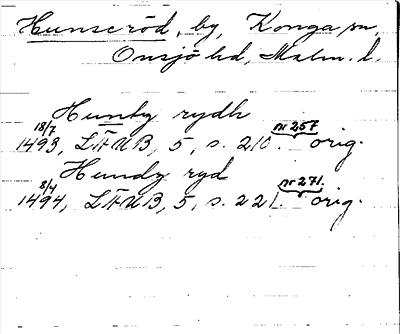 Hunseröd, by, Konga sn,
Onsjö hd, Malm. l.
Hunby rydh
18/7 1493, LÄUB, 5, s. 210. nr 257. orig.
Hundz ryd
8/4 1494, LÄUB, 5, s. 221. nr 271. orig.